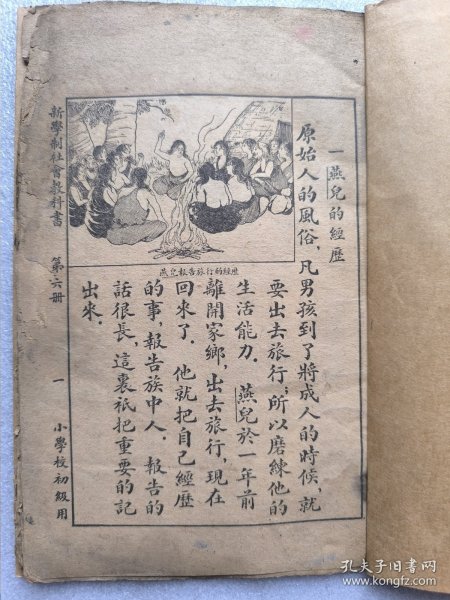 一 燕兒的經歷
原始人的風俗，凡男孩到了將成人的時候，就
要出去旅行；所以磨練他的
生活能力．燕兒於一年前
離開家鄉，出去旅行，現在
回來了．他就把自己經歷
的事，報告族中人．報告的
話很長，這裏祇把重要的記
出來．
燕兒報告旅行的經歷
新學制社會教科書 第六册 一 小學校初級用
孔夫子旧书网
www.kongfz.com